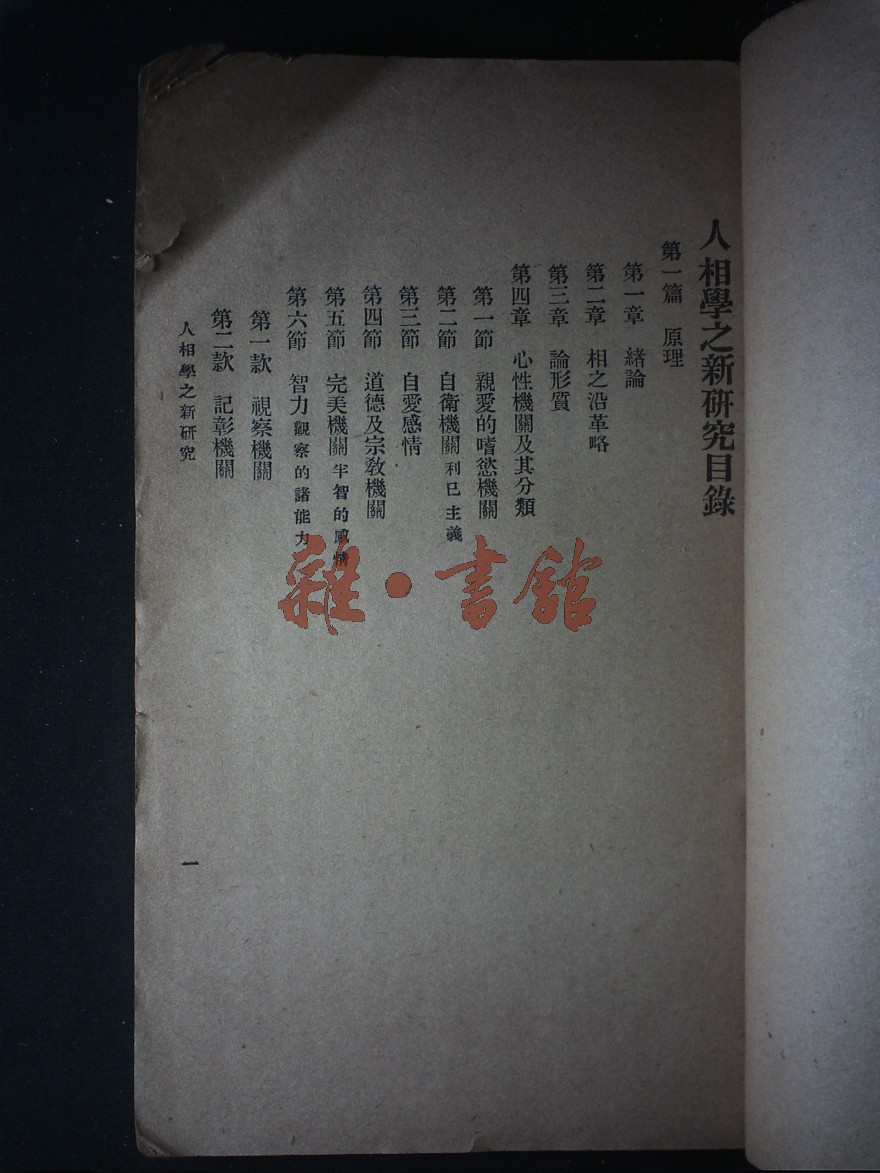 人相學之新硏究目錄
第一篇　原理
第一章　緒論
第二章　相之沿革略
第三章　論形質
第四章　心性機關及其分類
第一節　親愛的嗜慾機關
第二節　自衛機關利已主義
第三節　自愛感情
第四節　道德及宗敎機關
第五節　完美機關半智的感情
第六節　智力觀察的諸能力
第一款　視察機關
第二款　記彰機關
人相學之新硏究
一
雜·書館